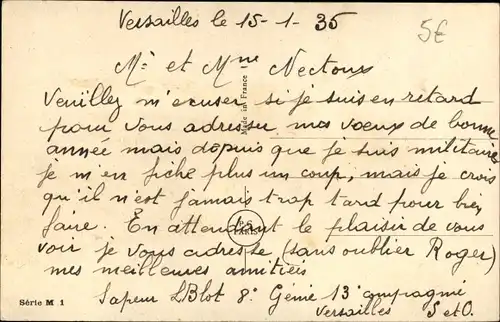 Versailles le 15-1-35
5€
Mr et Mme Nectoux
Veuillez m'excuser si je suis en retard
pour vous adresser mes voeux de bonne
année mais depuis que je suis militaire
je m'en fiche plus un coup, mais je crois
qu'il n'est jamais trop tard pour bien
faire. En attendant le plaisir de vous
voir je vous adresse (sans oublier Roger)
mes meilleures amitiés
Sapeur LBlot 8° Génie 13° compagnie
Versailles S et O.
Made in France
PARIS
Série M 1